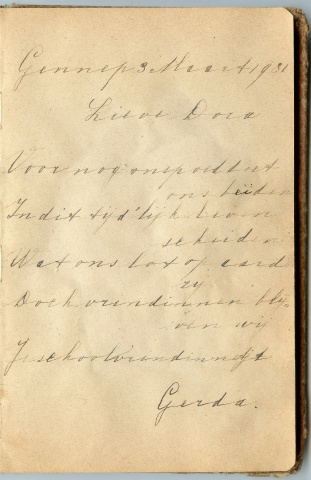 Gennep 3 Maart 1931
Lieve Dora
Voor nog onspoed tot
ons beiden
In dit tijd'lijk leven
scheiden
Wat ons lot op aard
zij
Doch vriendinnen blij-
ven wij
Je schoolvriendinnetje
Gerda.